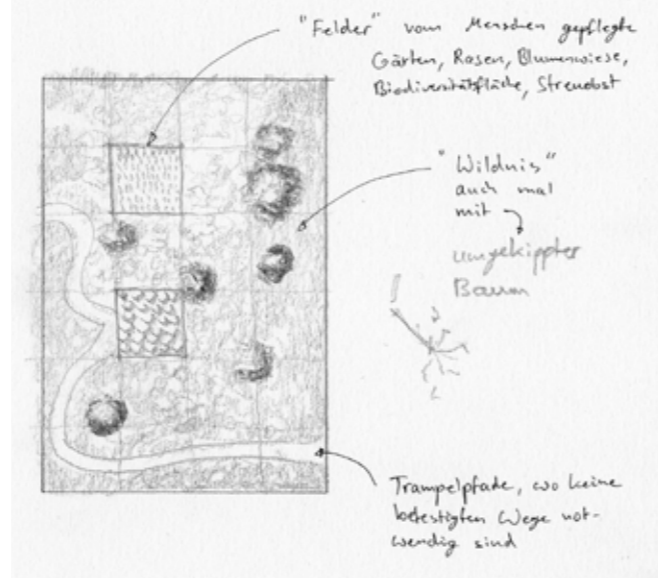 "Felder" vom Menschen gepflegte
Gärten, Rasen, Blumenwiese,
Biodiversitätsfläche, Streuobst
"Wildnis"
auch mal
mit
umgekippter
Baum
Trampelpfade, wo keine
befestigten Wege not-
wendig sind